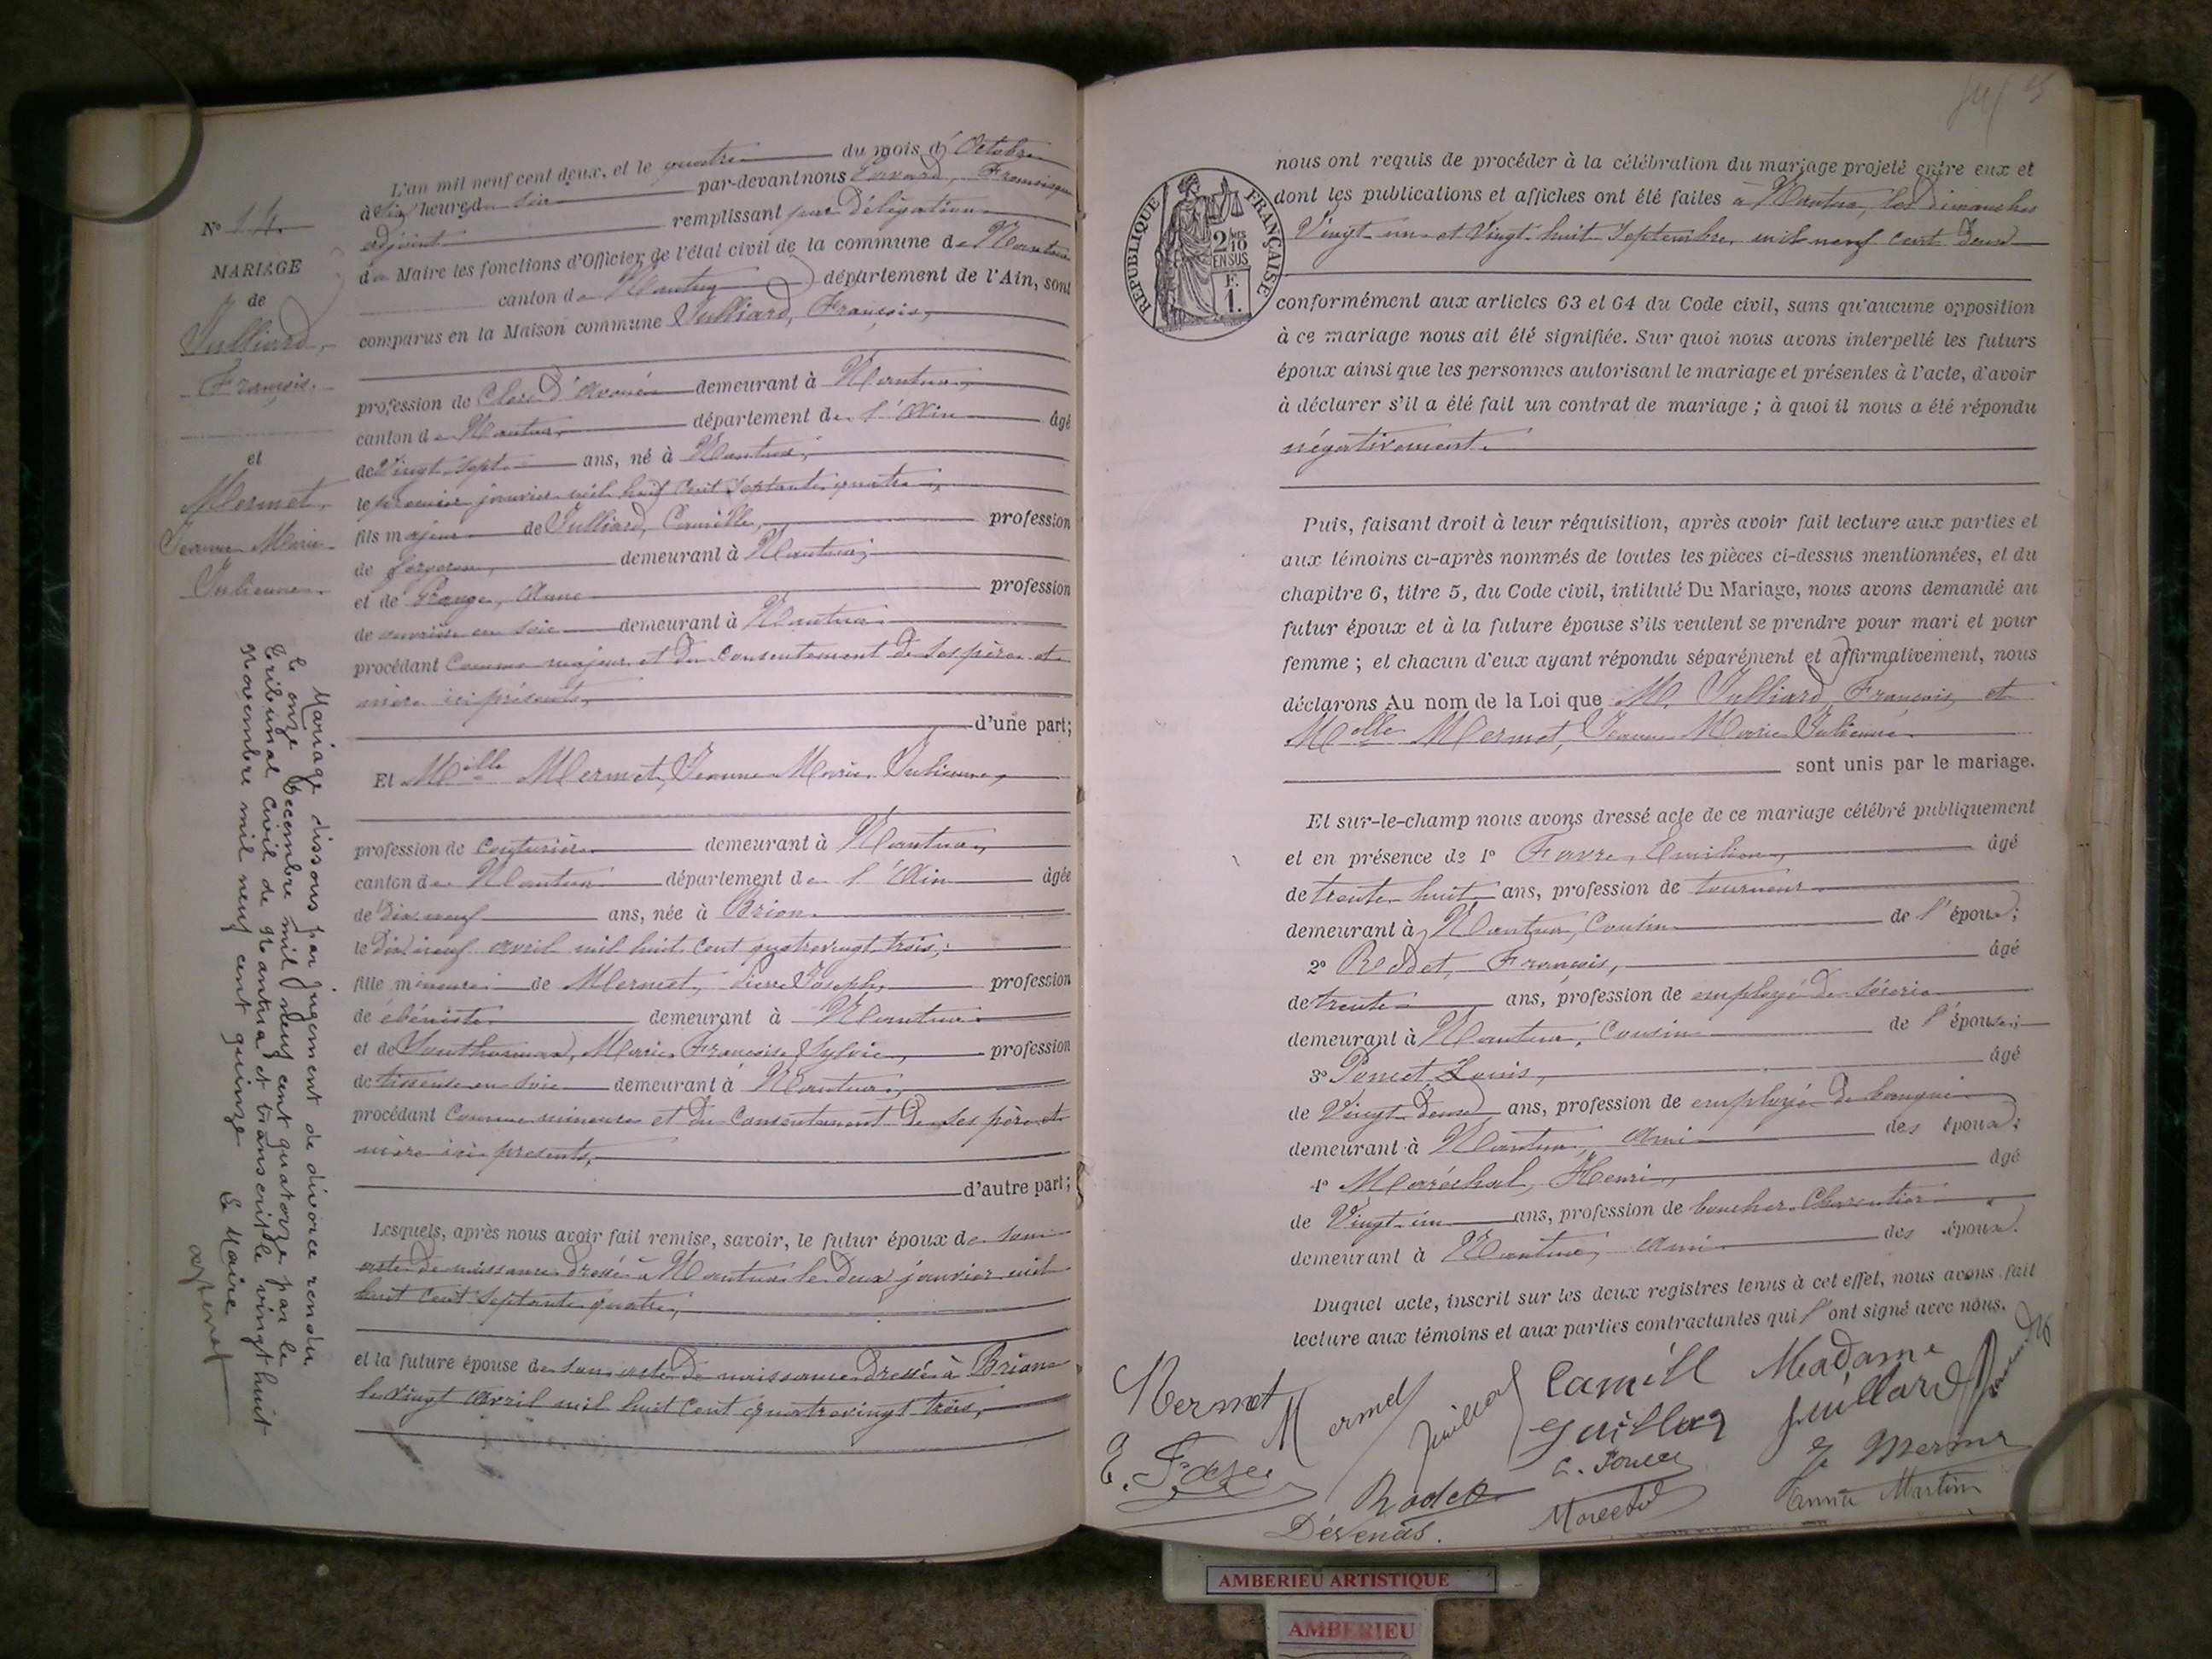 L'an mil neuf cent deux, et le quatre du mois d'Octobre
à Six heure du Soir par-devant nous Francisque
adjoint remplissant par Délégation
du Maire les fonctions d'Officier de l'état civil de la commune de Nantua
canton de Nantua département de l'Ain, sont
comparus en la Maison commune Julliard, François,
profession de Clerc d'avoué demeurant à Nantua,
canton de Nantua, département de l'Ain âgé
de Vingt sept ans, né à Nantua,
le premier janvier mil huit cent septante quatre,
fils majeur de Julliard, Camille, profession
de forgeron, demeurant à Nantua,
et de Grange, Anne profession
de ouvrière en soie demeurant à Nantua
procédant Comme majeur et du Consentement de Ses père et
mère ici présents,
d'une part;
Et Melle Mermet, Jeanne Marie Julienne,
profession de Couturière demeurant à Nantua,
canton de Nantua département de l'Ain âgée
de Dix neuf ans, née à Brion
le Dix neuf avril mil huit cent quatrevingt trois,
fille mineure de Mermet, Pierre Joseph, profession
de ébéniste demeurant à Nantua
et de Marie Françoise Sylvie, profession
de tisseuse en soie demeurant à Nantua,
procédant Comme mineure et du Consentement de Ses père et
mère ici présents,
d'autre part;
Lesquels, après nous avoir fait remise, savoir, le futur époux de Son
acte de naissance dressé à Nantua le Deux janvier mil
huit cent septante quatre,
et la future épouse de Son acte de naissance dressé à Brion
le Vingt Avril mil huit Cent quatrevingt trois,
N° 14.
MARIAGE
de
Julliard,
François.
et
Mermet,
Jeanne Marie
Julienne.
Mariage dissous par jugement de divorce rendu
le onze décembre mil neuf cent quatorze par le
Tribunal civil de Nantua et transcrit le vingt huit
Novembre mil neuf cent quinze
Le Maire
RÉPUBLIQUE FRANÇAISE
2/10 EN SUS
F. 1.
nous ont requis de procéder à la célébration du mariage projeté entre eux et
dont les publications et affiches ont été faites à Nantua, les Dimanches
Vingt un et Vingt huit Septembre mil neuf cent Deux
conformément aux articles 63 et 64 du Code civil, sans qu'aucune opposition
à ce mariage nous ait été signifiée. Sur quoi nous avons interpellé les futurs
époux ainsi que les personnes autorisant le mariage et présentes à l'acte, d'avoir
à déclarer s'il a été fait un contrat de mariage; à quoi il nous a été répondu
négativement.
Puis, faisant droit à leur réquisition, après avoir fait lecture aux parties et
aux témoins ci-après nommés de toutes les pièces ci-dessus mentionnées, et du
chapitre 6, titre 5, du Code civil, intitulé Du Mariage, nous avons demandé au
futur époux et à la future épouse s'ils veulent se prendre pour mari et pour
femme; et chacun d'eux ayant répondu séparément et affirmativement, nous
déclarons Au nom de la Loi que M. Julliard, François et
Melle Mermet, Jeanne Marie Julienne
sont unis par le mariage.
Et sur-le-champ nous avons dressé acte de ce mariage célébré publiquement
et en présence de 1° Favre, Emilien, âgé
de trente huit ans, profession de tourneur
demeurant à Nantua, Cousin de l'époux;
2° Rodet, François, âgé
de trente ans, profession de employé de soierie
demeurant à Nantua, Cousin de l'épouse;
3° Poncet Louis, âgé
de Vingt Deux ans, profession de employé de banque
demeurant à Nantua, Ami des époux;
4° Maréchal, Henri, âgé
de Vingt-un ans, profession de boucher Charcutier
demeurant à Nantua, Ami des époux.
Duquel acte, inscrit sur les deux registres tenus à cet effet, nous avons fait
lecture aux témoins et aux parties contractantes qui l'ont signé avec nous.
Mermet
Mermet
Camill
Madame
Juillard
E. Favre
Rodet
Dévenas.
Anna Martin
AMBERIEU ARTISTIQUE
AMBERIEU